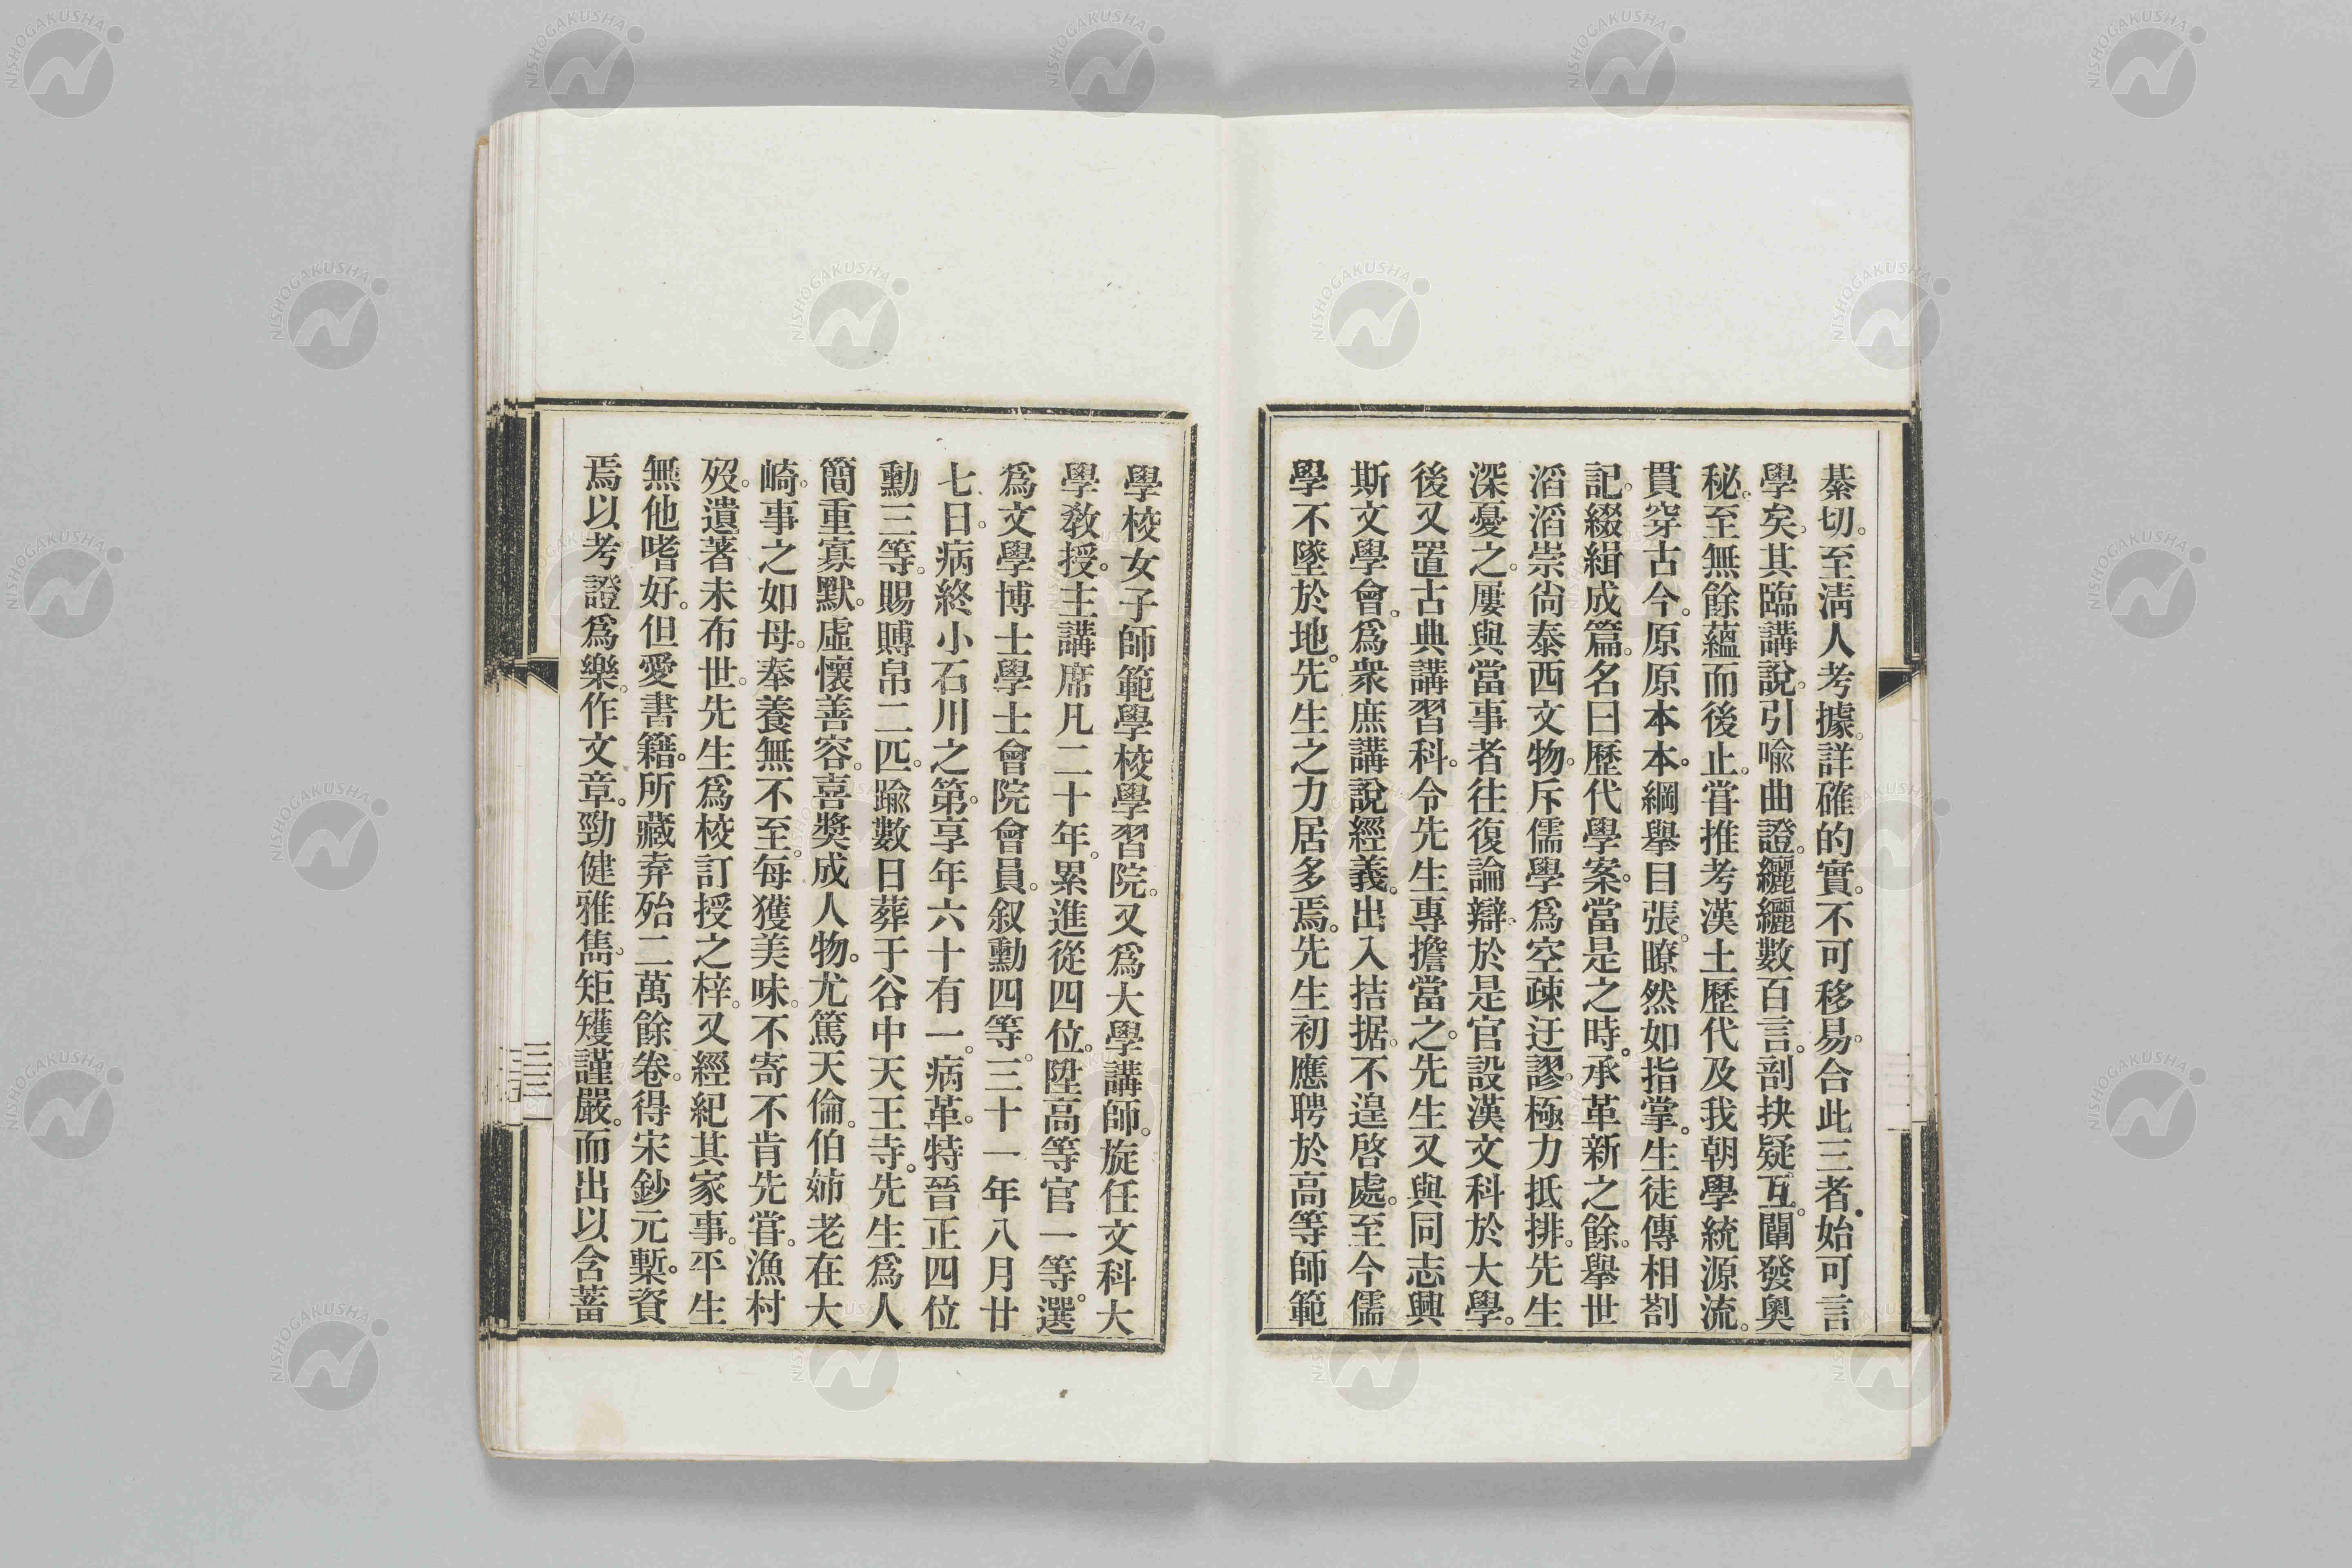 綦切。至淸人考據。詳確的實。不可移易。合此三者。始可言
學矣。其臨講說。引喩曲證。纚纚數百言。剖抉疑互。闡發奧
秘。至無餘蘊而後止。嘗推考漢土歷代及我朝學統源流。
貫穿古今。原原本本。綱擧目張。瞭然如指掌。生徒傳相剳
記。綴緝成篇。名曰歷代學案。當是之時。承革新之餘。擧世
滔滔崇尙泰西文物。斥儒學爲空疎迂謬。極力抵排。先生
深憂之。屢與當事者往復論辯。於是官設漢文科於大學。
後又置古典講習科。令先生專擔當之。先生又與同志興
斯文學會。爲衆庶講說經義。出入拮据。不遑啓處。至今儒
學不墜於地。先生之力居多焉。先生初應聘於高等師範
學校女子師範學校學習院。又爲大學講師。旋任文科大
學敎授。主講席凡二十年。累進從四位。陞高等官一等。選
爲文學博士學士會院會員。叙勳四等。三十一年八月廿
七日。病終小石川之第。享年六十有一。病革。特晉正四位
勳三等。賜賻帛二匹。踰數日葬于谷中天王寺。先生爲人
簡重寡默。虛懷善容。喜奬成人物。尤篤天倫。伯姉老在大
崎。事之如母。奉養無不至。每獲美味。不寄不肯先嘗。漁村
歿。遺著未布世。先生爲校訂授之梓。又經紀其家事。平生
無他嗜好。但愛書籍。所藏弆殆二萬餘卷。得宋鈔元槧。資
焉以考證爲樂。作文章。勁健雅雋。矩矱謹嚴。而出以含蓄
三三
NISHOGAKUSHA